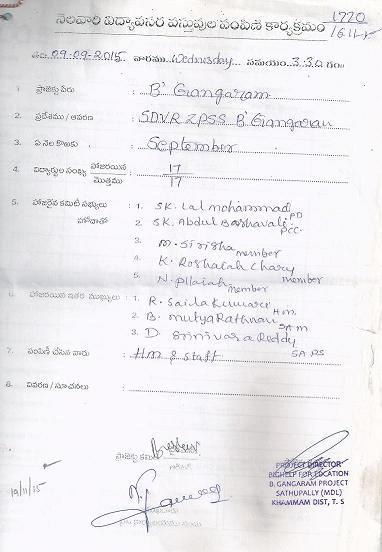 నెలవారి విద్యావసర వస్తువుల పంపిణి కార్యక్రమం
1770
తేది: 09-09-2015. వారము Wednesday... సమయం..3.30 గం॥
1. ప్రాజెక్టు పేరు : B' Gangaram
2. ప్రదేశము / ఆవరణ : SDVR ZPSS B' Gangaram
3. ఏ నెల కొరకు : September
4. విద్యార్థుల సంఖ్య హాజరయిన : 17
మొత్తము 17
5. హాజరైన కమిటీ సభ్యులు : 1. SK. Lal mohammad PD
హోదాతో 2. SK. Abdul Bashavali PCC.
3. M. Sirisha member
4. K. Roshaiah Chary member
5. N. Pllaiah member
6. హాజరయిన ఇతర ముఖ్యులు : 1. R. Saila Kumari H.m.
2. B. mutya Rathnam SAM
3. D. Srinivara Reddy SA PS
7. పంపిణీ చేసిన వారు : HM & Staff
8. వివరణ / సూచనలు :
ప్రాజెక్టు కమిటి
19/11/15
PROJECT DIRECTOR
BIGHELP FOR EDCATION
B. GANGARAM PROJECT
SATHUPALLY (MDL)
KHAMMAM DIST, T. S